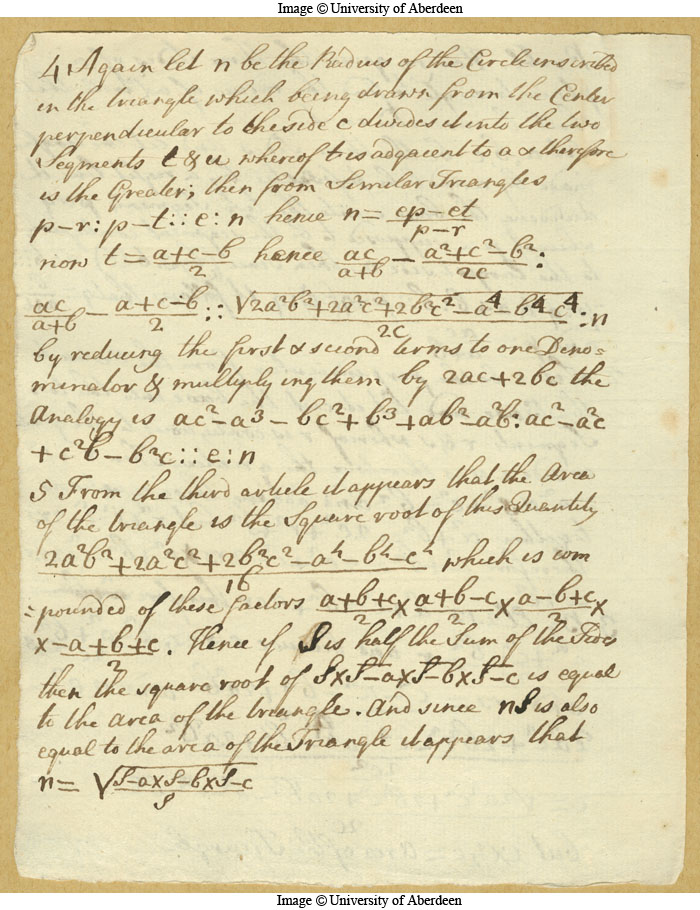 Image © University of Aberdeen
4 Again let n be the Radius of the Circle inscribed
in the triangle which being drawn from the Center
perpendicular to the side c divides it into the two
Segments t & u whereof t is adjacent to a & therefore
is the Greater; then from Similar Triangles
p-r : p-t :: e : n hence n = ep-et/p-r
now t = a+c-b/2 hence ac/a+b - a²+c²-b²/2c :
ac/a+b - a+c-b/2 :: √2a²b²+2a²c²+2b²c²-a⁴-b⁴-c⁴/2c : n
by reducing the first & second terms to one Deno=
minator & multiplying them by 2ac+2bc the
Analogy is ac²-a³-bc²+b³+ab²-a²b : ac²-a²c
+c²b-b²c :: e : n
5 From the third article it appears that the Area
of the triangle is the Square root of this Quantity
2a²b²+2a²c²+2b²c²-a⁴-b⁴-c⁴/16 which is com
=pounded of these factors a+b+c/2 × a+b-c/2 × a-b+c/2 ×
× -a+b+c/2. Hence if S is half the Sum of the Sides
then the square root of S×S-a×S-b×S-c is equal
to the area of the triangle. And since nS is also
equal to the area of the Triangle it appears that
n = √S-a×S-b×S-c/S
Image © University of Aberdeen